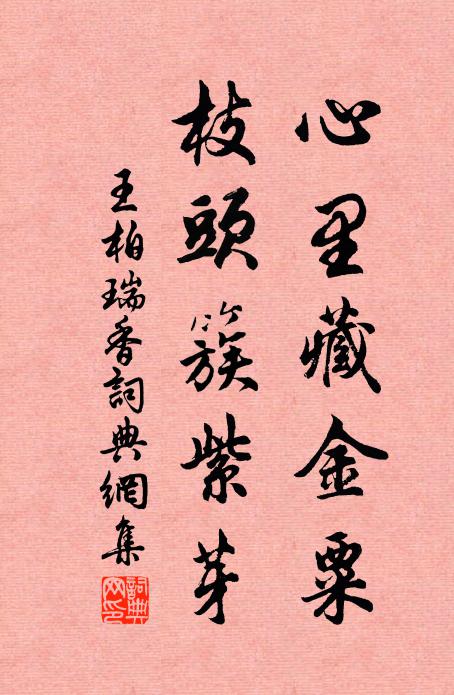 心里藏金粟
枝頭簇紫芽
王柏瑞香詞典網集
詞典网印